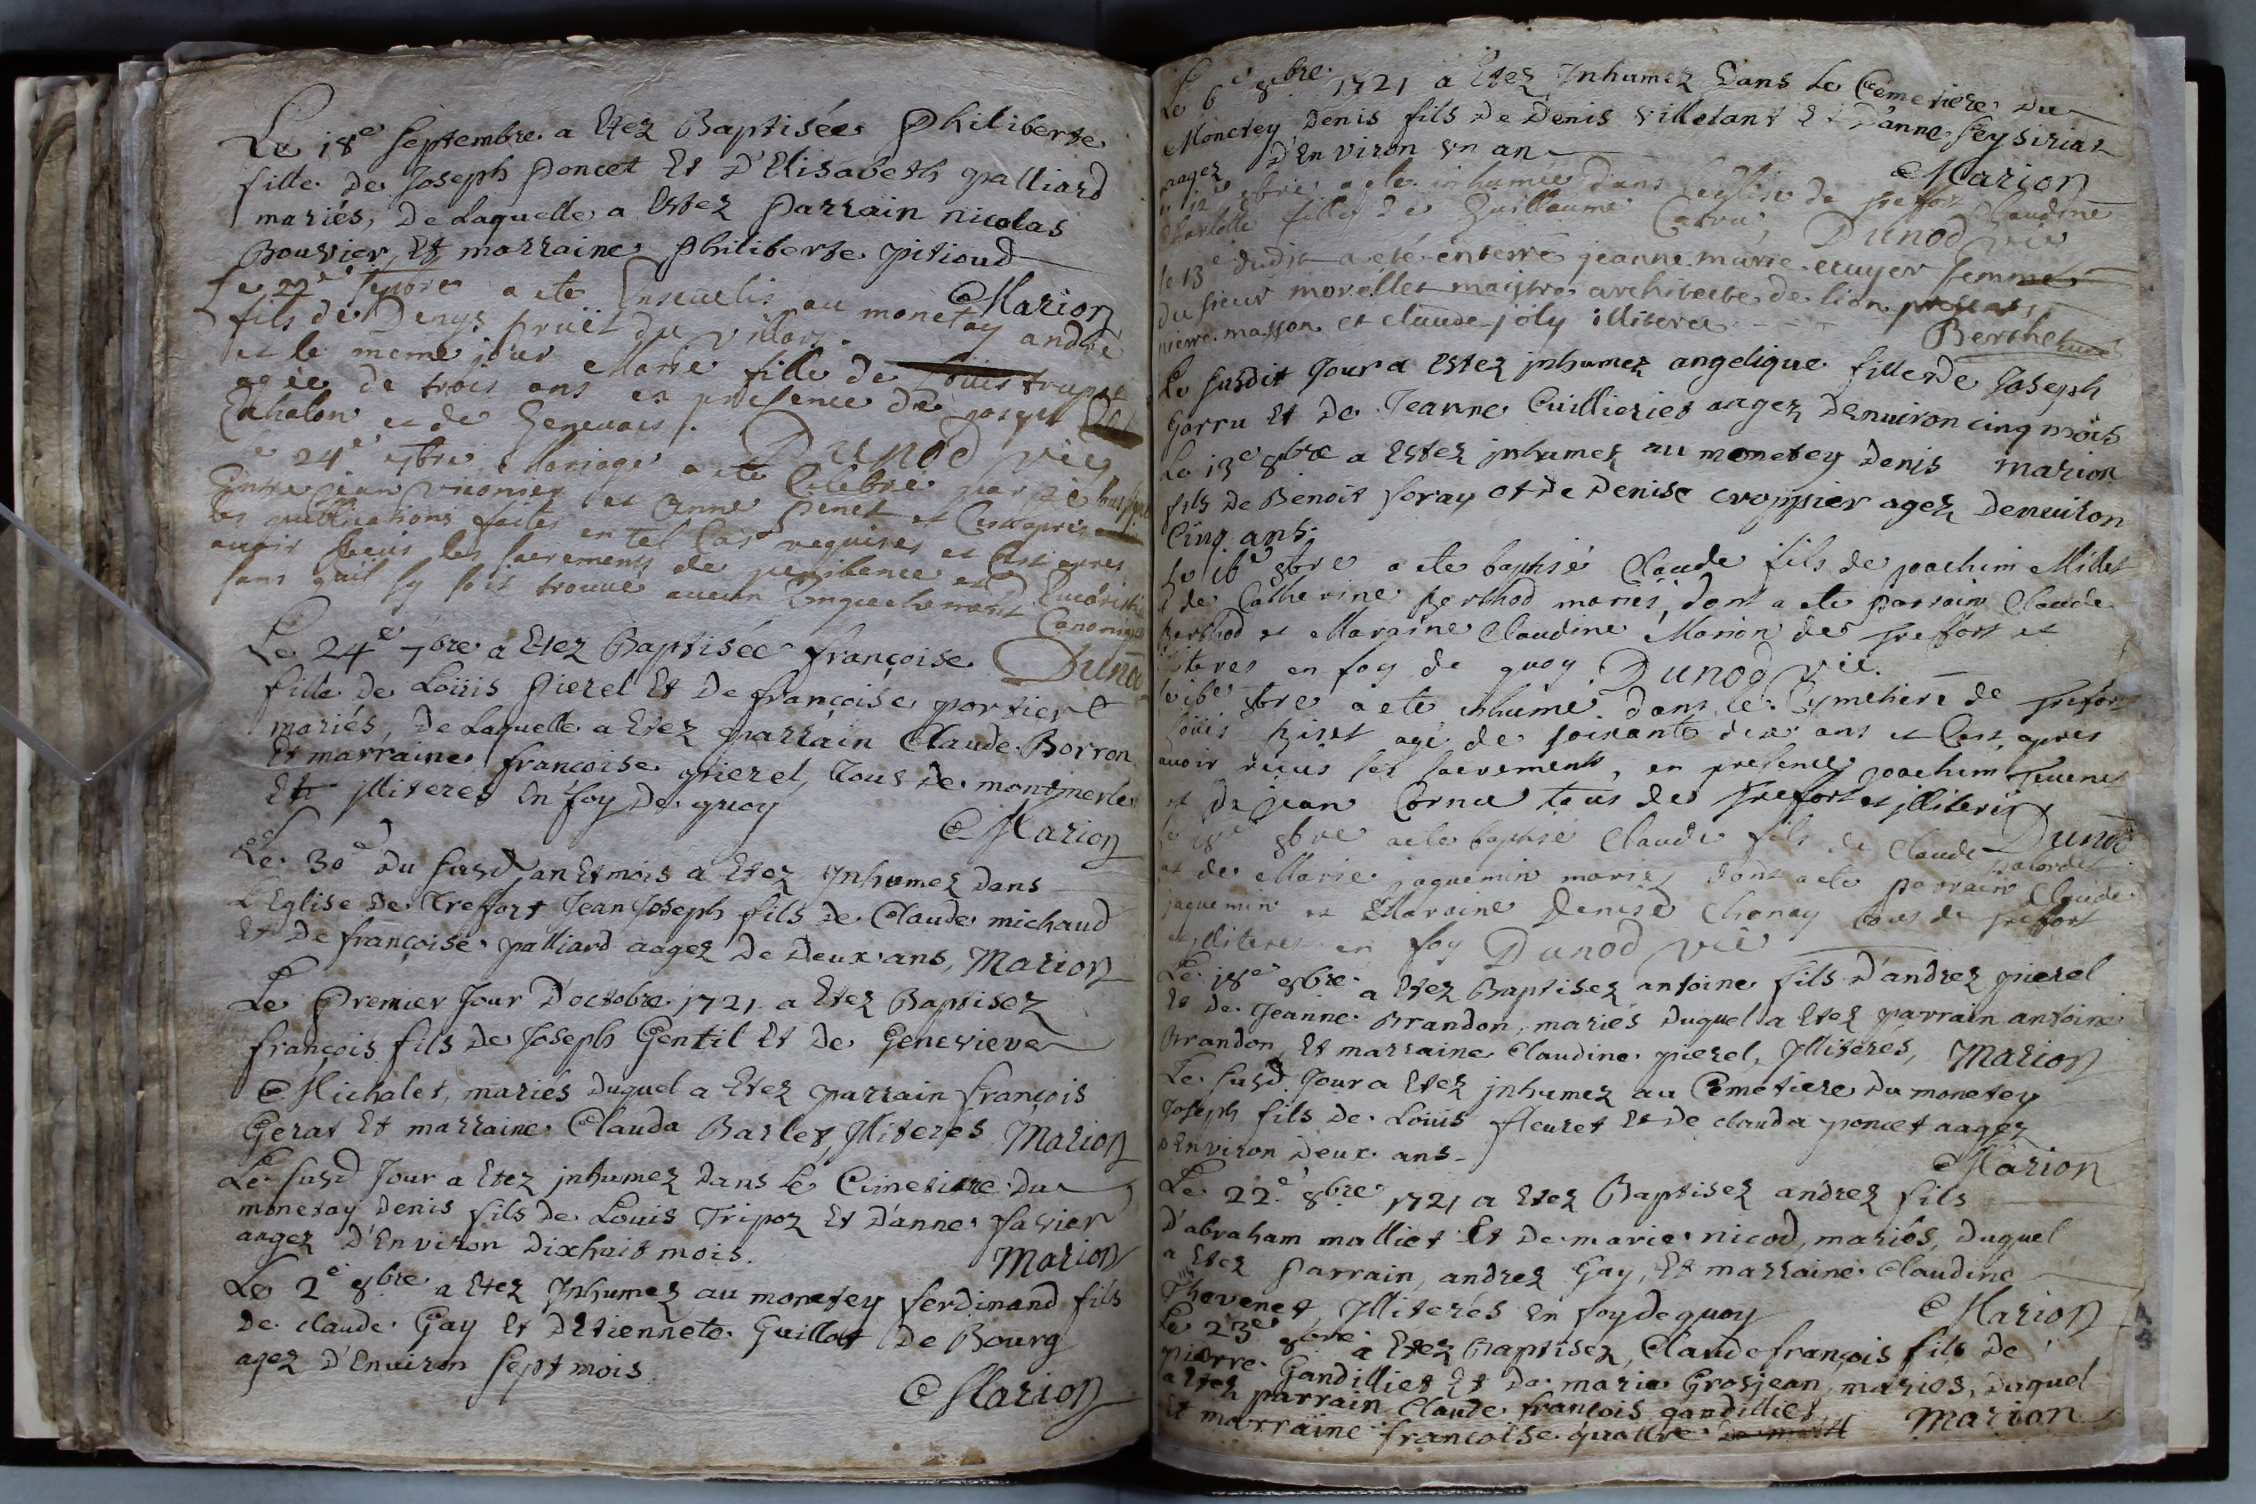 Le 18e septembre a Etez Baptisée Philiberte
fille de Joseph Poncet Et D'Elisabeth palliard
mariés, De Laquelle a Estez Parrain nicolas
Bouvier, Et marraine Philiberte pitioud
Marion
Le 22e 7bre a ete Ensevelis au monetay andré
fils de Denys pruët du villar.
et le meme jour Marie fille de Louis trupoz
agée de trois ans en presence de joseph
Chalon et de Genevais.
Dunod vic
Le 24e 7bre Mariage a ete Celebré par
Entre jean vuomier et Anne penet et Ce apres
les publications faites en tel Cas requises et Ce apres
avoir reçus les sacrements de penitence et Eucaristie
sans quil sy soit trouvé aucun Empechement Canonique
Dunod
Le 24e 7bre a Etez Baptisée françoise
fille de Loüis Pierel Et De françoise portier
mariés, De Laquelle a Etez parrain Claude Borron
Et marraine françoise pierel, Tous De montmerle
Et illiteres En foy De quoy
Marion
Le 30e Du susd an Et mois a Etez Inhumez Dans
L'Eglise De Treffort Jean Joseph fils De Claude michaud
Et De françoise palliard aagez De Deux ans, Marion
Le Premier Jour D'octobre 1721 a Etez Baptisez
françois fils De Joseph Gentil Et De Genevieve
Michalet, mariés Duquel a Etez parrain françois
Gerat Et marraine Clauda Barlet, Illiterés Marion
Le susd Jour a Etez inhumez Dans Le Cimetiere Du
monetay Denis fils De Louis Tripoz Et D'anne favier
aagez D'Environ Dixhuit mois.
Marion
Le 2e 8bre a Etez Inhumez au monetey ferdinand fils
De claude Gay Et D'Etiennete Guillot De Bourg
agez D'Environ sept mois
Marion
Le 6e 8bre 1721 a Etez Inhumez Dans Le Cemetiere Du
Monetey Denis fils De Denis villetant Et D'anne feysiriat
aagez D'Environ un an
Marion
12e 8bre a ete inhumée dans leglise de treffort Claudine
Charlotte fille de Guillaume Catru, Dunod vic
le 13e dudit a eté enterré jeanne marie ecuyer femme
du sieur morellet maistre architecte de lion presens
pierre masson et claude joly illiteres
Berthet
Le susdit Jour a Estez inhumez angelique fille De Joseph
Garru Et De Jeanne Cuillieriet aagez Denviron cinq mois
Marion
Le 13e 8bre a Estez inhumez au monetey Denis
fils De Benoit foray et De Denise croppier agez Denviron
Cinq ans.
Le 16e 8bre a ete baptisé Claude fils de joachim Millet
et de Catherine Berthod mariés, dont a ete parrain Claude
Berthod et Maraine Claudine Marion de treffort et
illiteres en foy de quoy Dunod vic.
le 16e 8bre a ete inhumé dans le Cymetiere de trefort
Loüis Bizet agé de soixante dix ans et Ce apres
avoir reçus ses sacrements, en presence joachim Tevenet
et de jean Cornu tous de trefort et illiteres
Dunod
Le 18e 8bre a ete baptisé Claude fils de Claude
et de Marie jaquemin mariés, dont a ete parrain Claude
jaquemin et Maraine Denise Chanay tous de treffort
et illiteres en foy Dunod vic
Le 18e 8bre a Etez Baptisez antoine fils D'andrez pierel
Et De Jeanne Brandon, mariés Duquel a Etez parrain antoine
Brandon, Et marraine Claudine pierel, Illiterés, Marion
Le susd. Jour a Etez inhumez au Cemetiere Du monetey
Joseph fils De Loüis fleuret Et De clauda poncet aagez
D'Environ Deux ans
Marion
Le 22e 8bre 1721 a Etez Baptisez andrez fils
D'abraham malliet Et De marie nicod, mariés, Duquel
a Etez Parrain, andrez Gay, Et marraine Claudine
Thevenet, Illiterés En foy de quoy
Marion
Le 23e 8bre a Etez Baptisez, Claude françois fils De
pierre Gandilliet Et De marie Grosjean, mariés, Duquel
a Etez parrain Claude françois gandilliet
Et marraine françoise quattre Marion